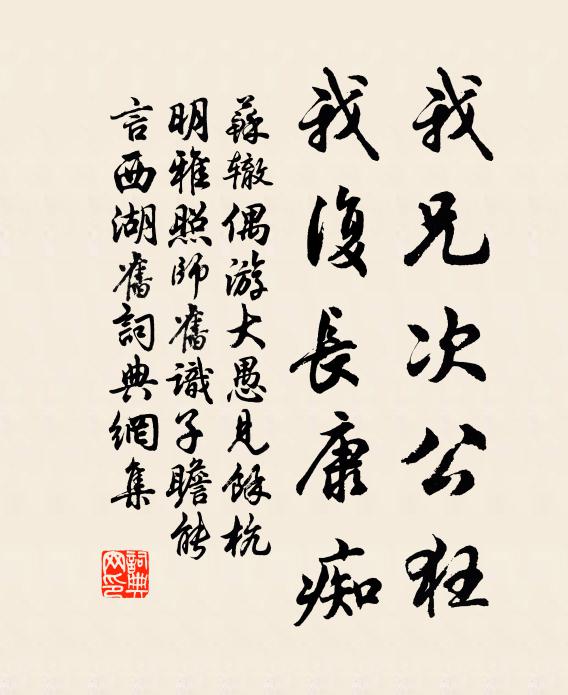 我兄次公狂
我復長康痴
蘇辙偶游大愚見餘杭
明雅照師舊識子瞻能
言西湖舊詞典網集
詞典
网印